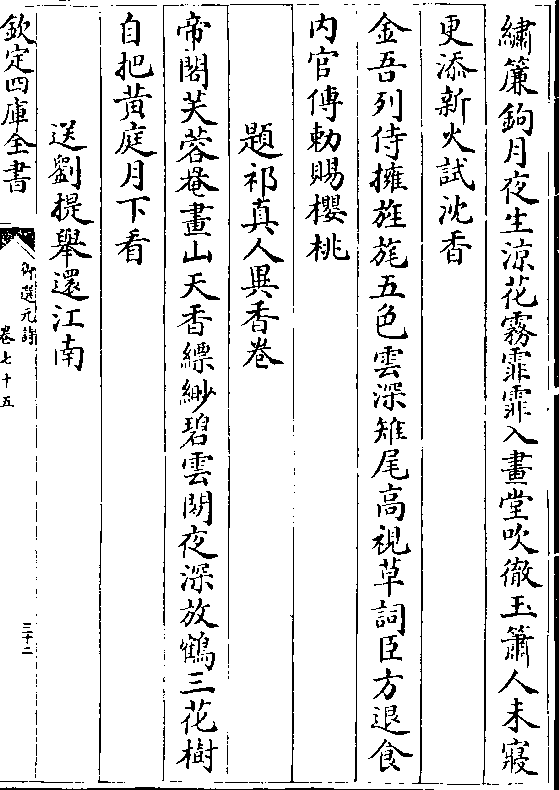 繡簾鉤月夜生涼花霧霏霏入畫堂吹徹玉簫人未寢
更添新火試沈香
金吾列侍擁旌旄五色雲深雉尾高視草詞臣方退食
内官傳勅賜櫻桃
題祁真人異香卷
帝閣芙蓉菴畫山天香縹緲碧雲間夜深放鶴三花樹
自把黄庭月下看
送劉提舉還江南
欽定四庫全書
御選元詩
卷七十五
三十二